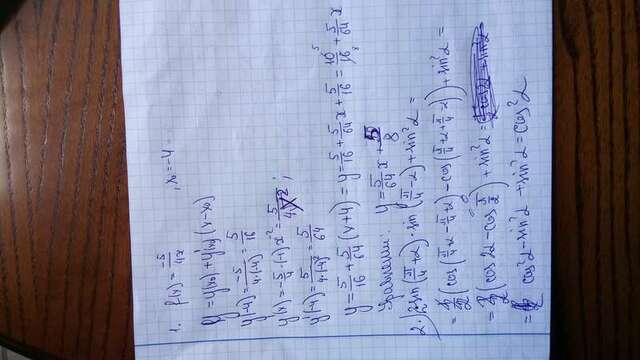 1. f(x) = -5/4x , x₀ = -4
y = y(x₀) + y'(x₀)(x - x₀)
y(-4) = -5/4·(-4) = 5/16
y'(x) = -5/4 · (-1)x⁻² = 5/4x² ;
y'(-4) = 5/4·(-4)² = 5/64
y = 5/16 + 5/64 (x+4) = y = 5/16 + 5/64 x + 5/16 = 10/16 + 5/64 x
y = 5/64 x + 5/8
2. 2 sin(π/4 + α) · sin(π/4 - α) + sin²α =
(cos(π/4 + α - π/4 + α) - cos(π/4 + α + π/4 - α)) + sin²α =
(cos 2α - cos π/2) + sin²α =
= cos²α - sin²α + sin²α = cos²α